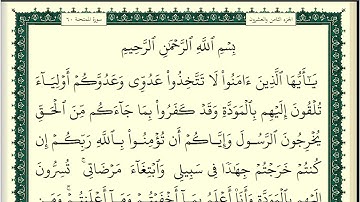 سورة الممتحنة ٦٠
الجزء الثامن والعشرون
بِسْمِ اللَّهِ الرَّحْمَٰنِ الرَّحِيمِ
يَٰٓأَيُّهَا ٱلَّذِينَ ءَامَنُوا۟ لَا تَتَّخِذُوا۟ عَدُوِّى وَعَدُوَّكُمْ أَوْلِيَآءَ
تُلْقُونَ إِلَيْهِم بِٱلْمَوَدَّةِ وَقَدْ كَفَرُوا۟ بِمَا جَآءَكُم مِّنَ ٱلْحَقِّ
يُخْرِجُونَ ٱلرَّسُولَ وَإِيَّاكُمْ أَن تُؤْمِنُوا۟ بِٱللَّهِ رَبِّكُمْ إِن
كُنتُمْ خَرَجْتُمْ جِهَٰدًا فِى سَبِيلِى وَٱبْتِغَآءَ مَرْضَاتِى ۚ تُسِرُّونَ
إِلَيْهِم بِٱلْمَوَدَّةِ وَأَنَا۠ أَعْلَمُ بِمَآ أَخْفَيْتُمْ وَمَآ أَعْلَنتُمْ ۚ وَمَن